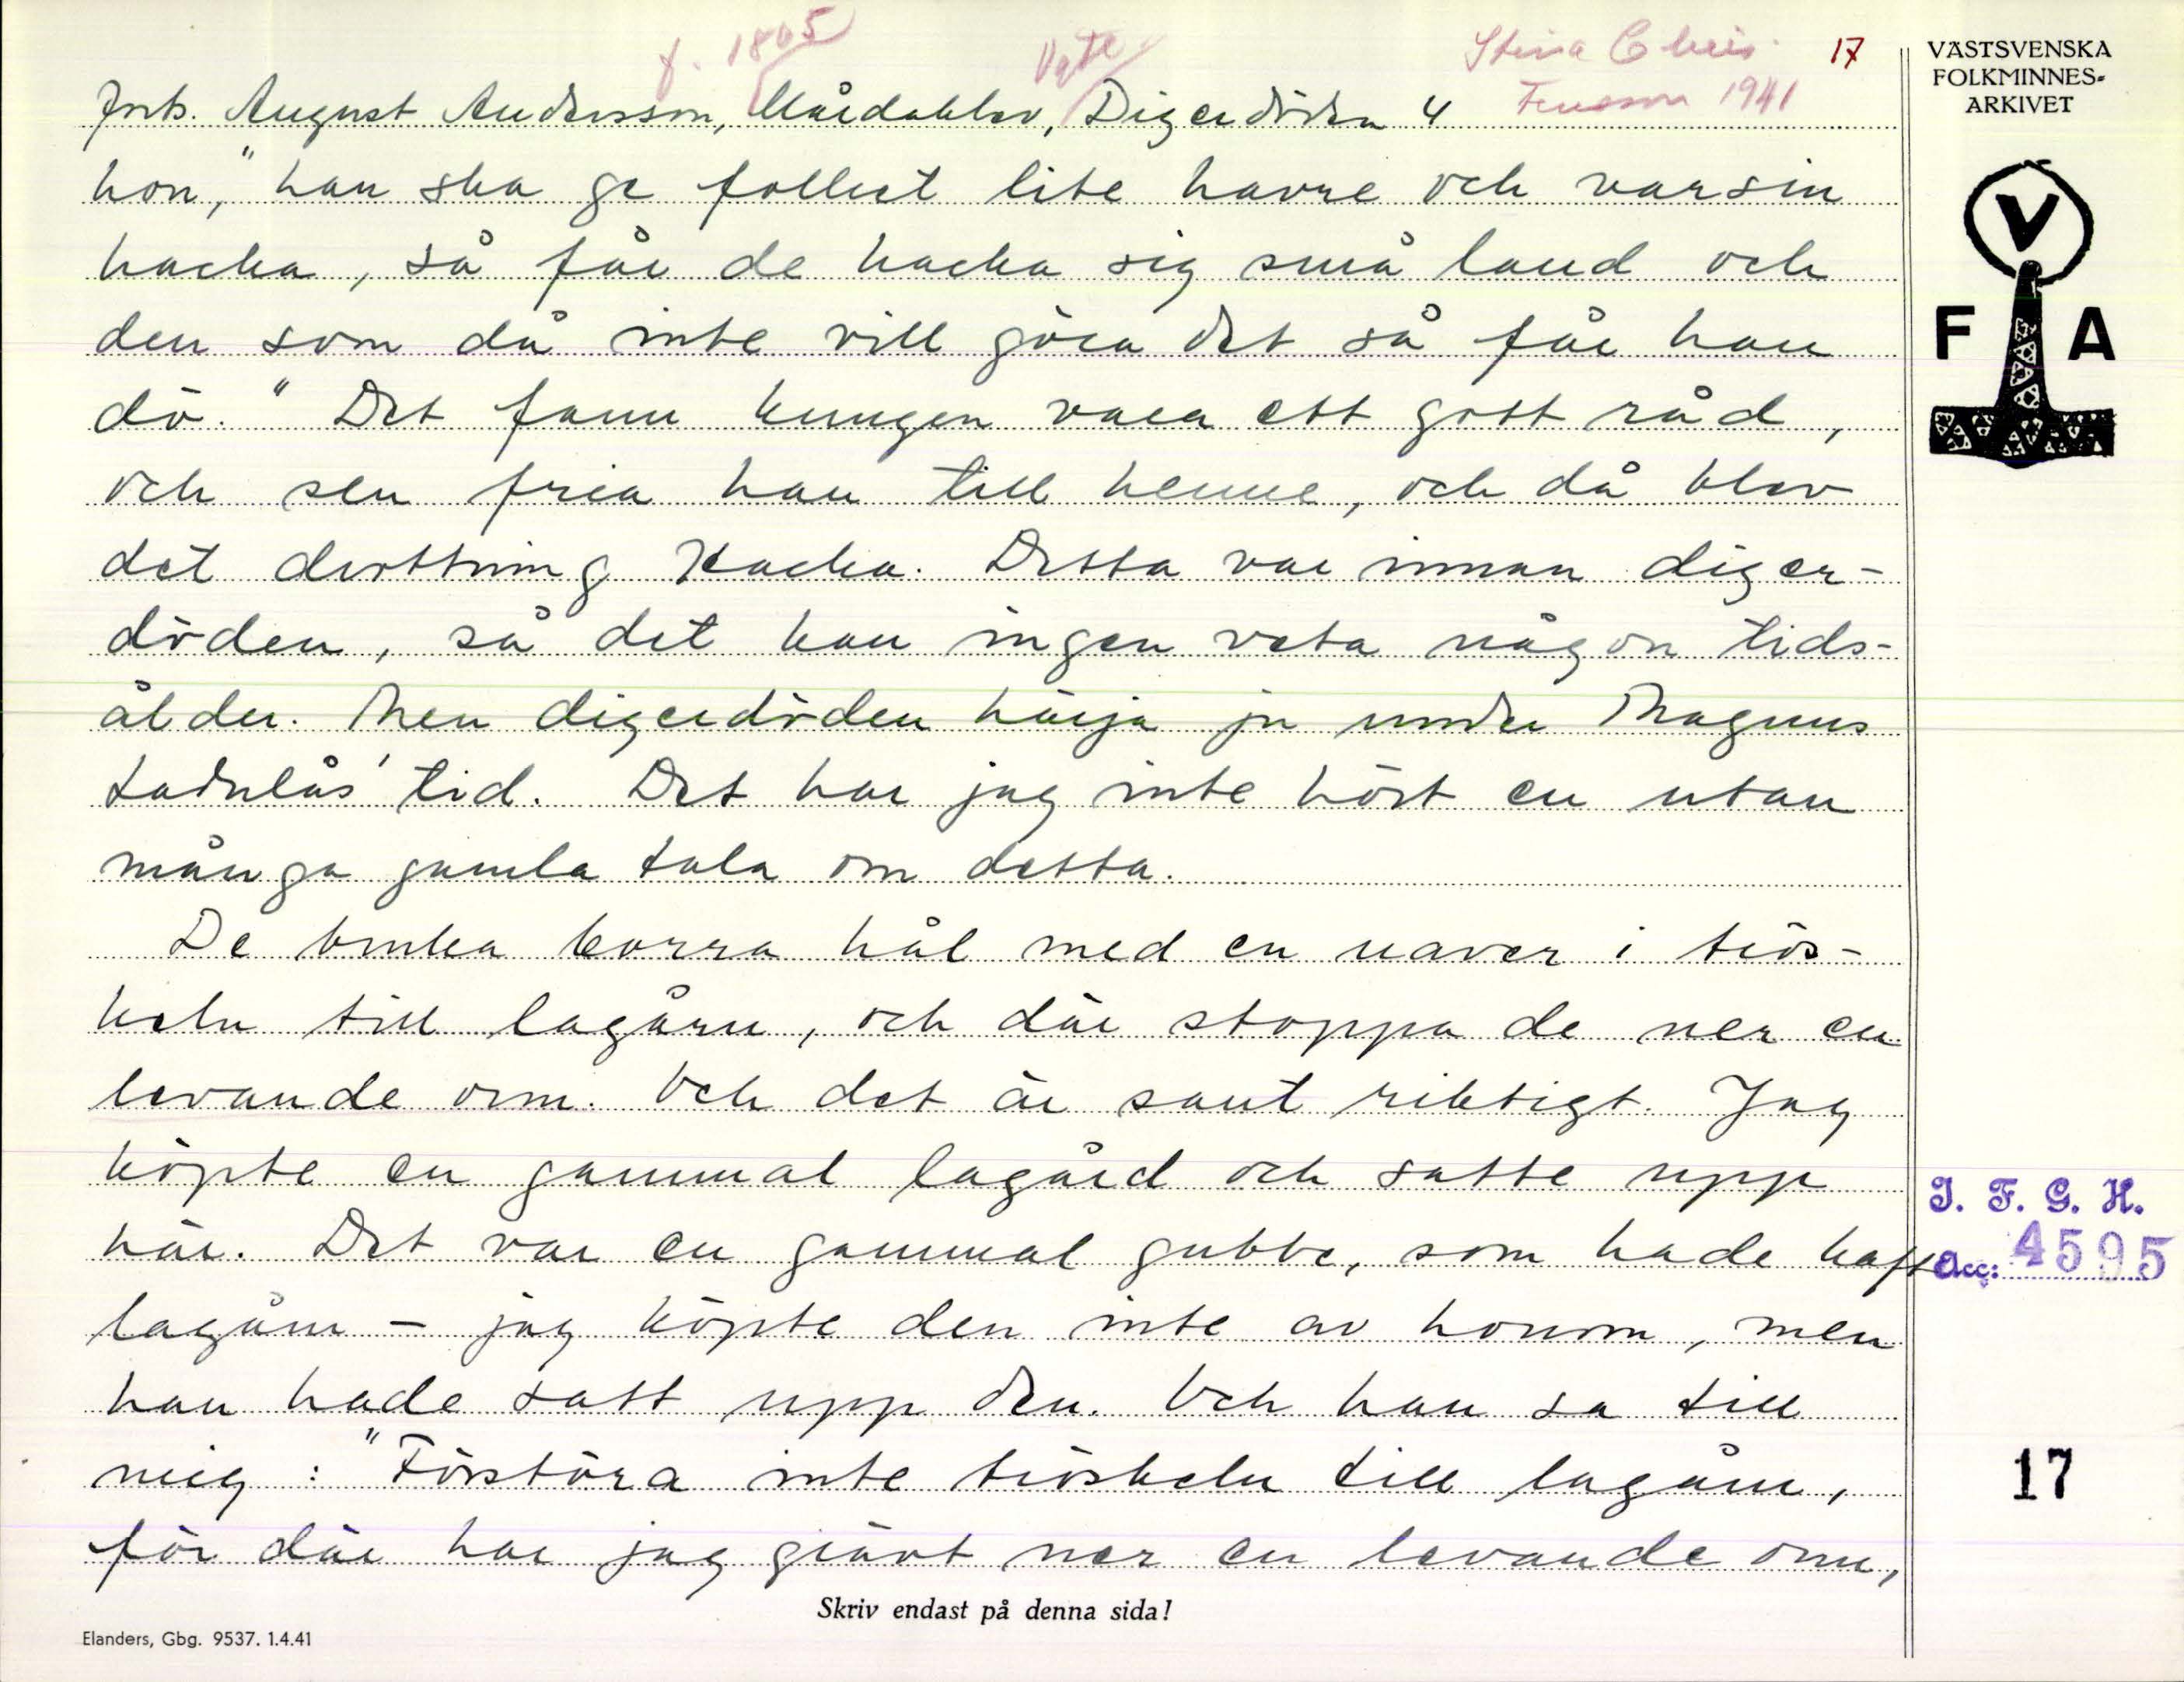 f. 1865 Väte Stina Chris- 17
Forts. August Andersson, Mårdaklev, Digerdöden 4 Tensson 1941
hon, "han ska ge folket lite havre och varsin
hacka, så får de hacka sig små land och
den som då inte vill göra det så får han
dö." Det fann kungen vara ett gott råd,
och sen fria han till henne, och då blev
det drottning Hacka. Detta var innan diger-
döden, så det kan ingen veta någon tids-
ålder. Men digerdöden härja ju under Magnus
Ladulås' tid. Det har jag inte hört en utan
många gamla tala om detta.
De bruka borra hål med en naver i trös-
keln till lagårn, och där stoppa de ner en
levande orm. Och det är sant riktigt. Jag
köpte en gammal lagård och satte upp
här. Det var en gammal gubbe, som hade haft
lagårn - jag köpte den inte av honom, men
han hade satt upp den. Och han sa till
mig: "Förstöra inte tröskeln till lagårn,
för där har jag grävt ner en levande orm,
Skriv endast på denna sida!
Elanders, Gbg. 9537. 1.4.41
VÄSTSVENSKA
FOLKMINNES-
ARKIVET
V
F A
I. F. G. H.
Acc: 4595
17